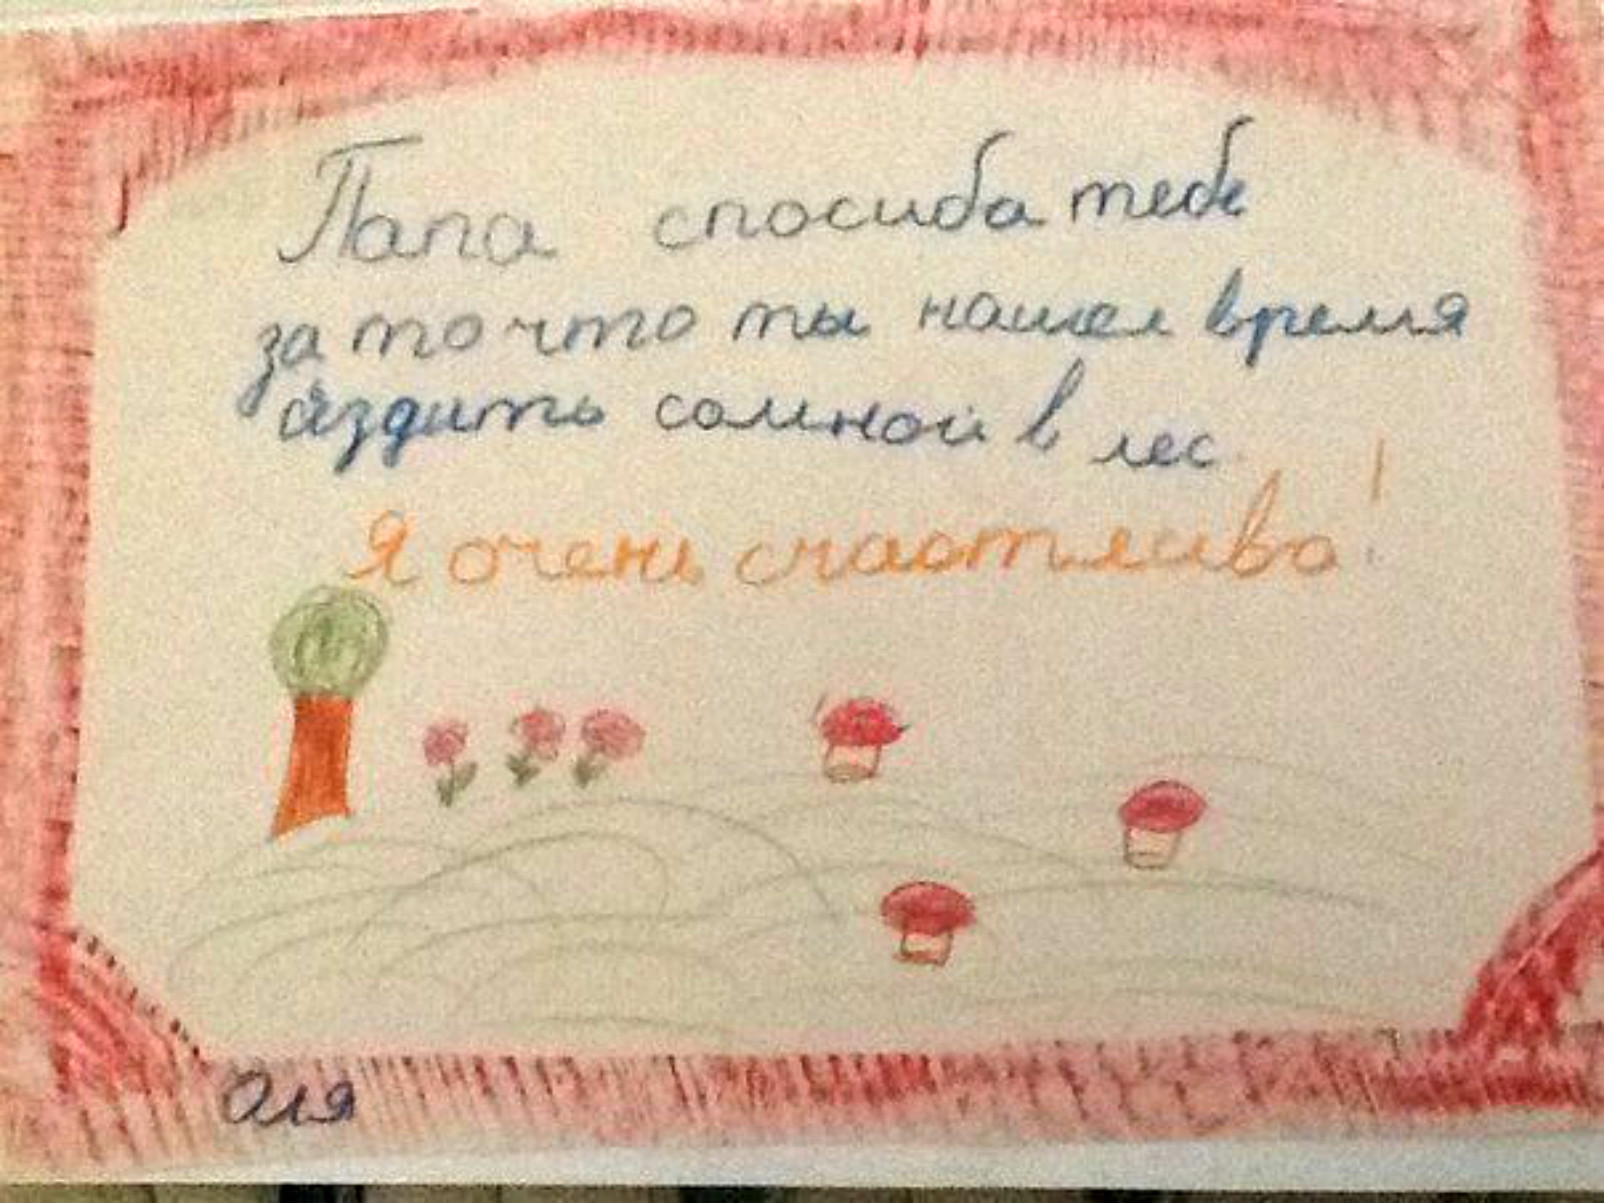 Папа спосиба тебе
за то что ты нашел время
ездить сомной в лес
Я очень счастлива!
Оля